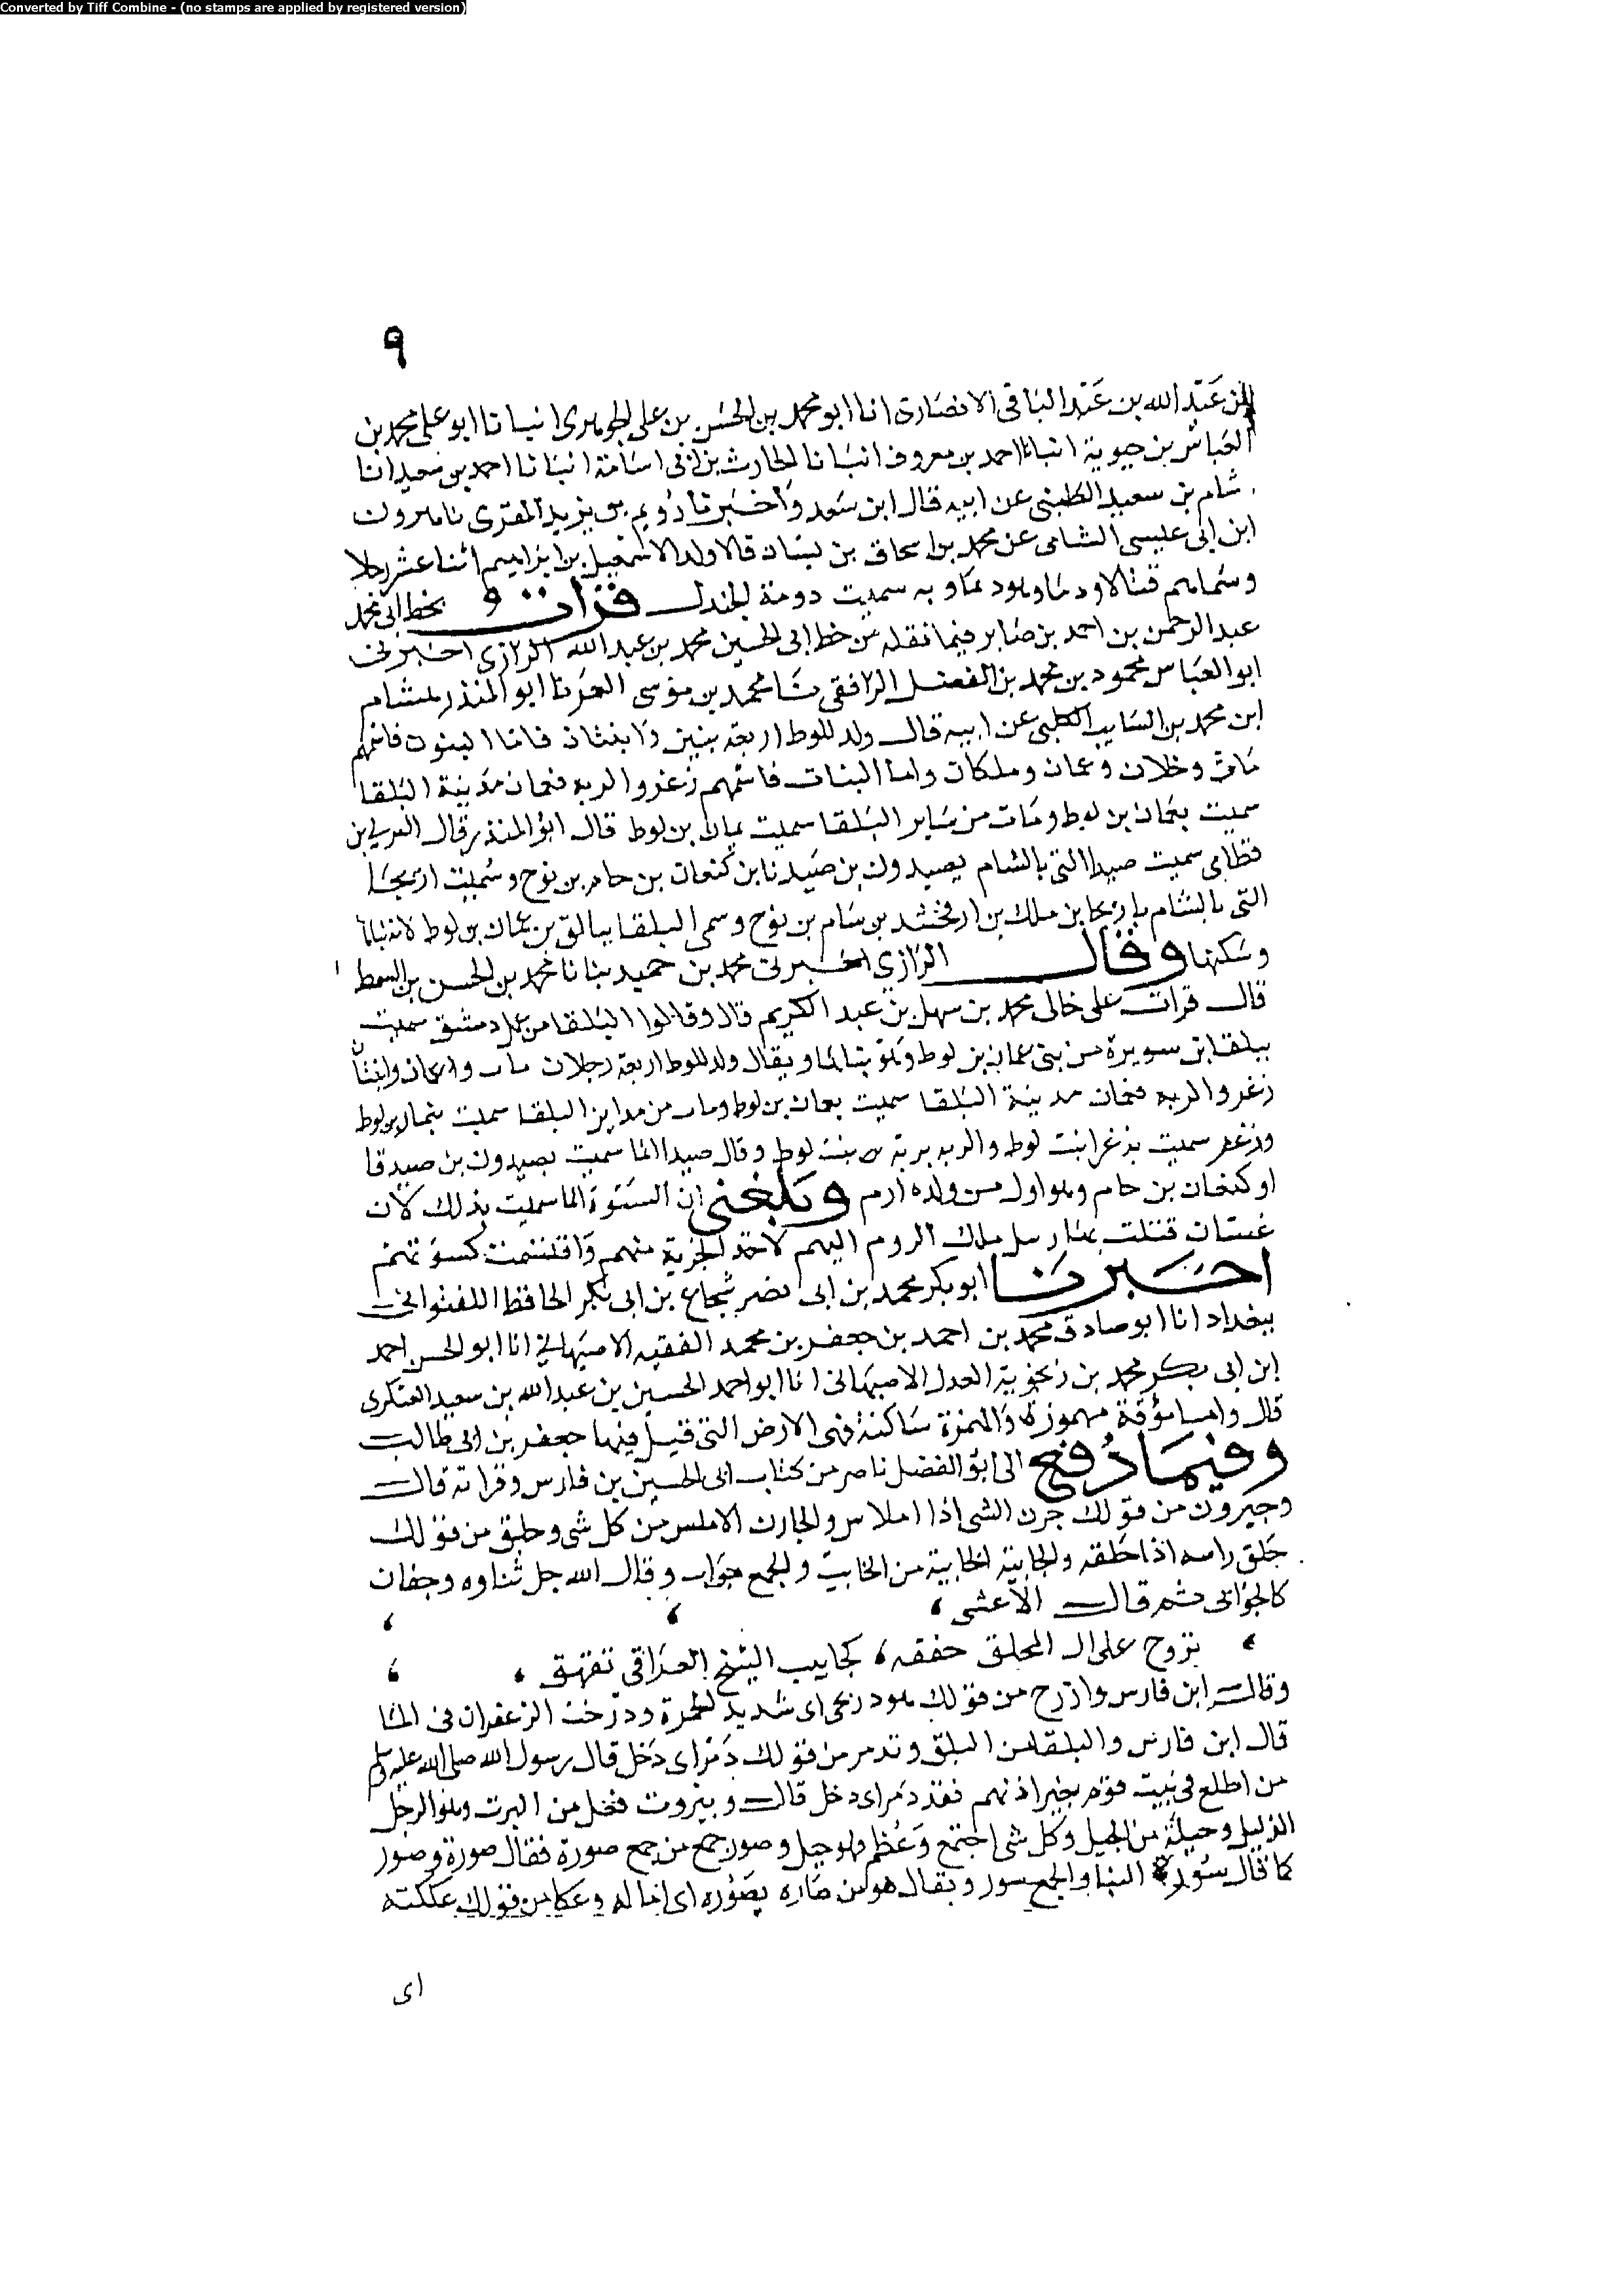 Converted by Tiff Combine - (no stamps are applied by registered version)
٩
بن عبد الله بن عبد الباقى الانصارى انا ابو محمد بن الحسن بن على الجوهرى انبانا ابو على محمد بن
العباس بن حيوية انبانا احمد بن معروف انبانا الحارث بن ابى اسامة انبانا احمد بن سعيد انا
شام بن سعيد الكلبى عن ابيه قال ابن سعد واخبرنا رويم بن يزيد المقرى نا هرون
ابن ابى عيسى الشامى عن محمد بن اسحاق بن يسار قالا ولد لاسمعيل بن ابراهيم اثنا عشر رجلا
وسماهم فقالا ودما وهو دعا وبه سميت دومة الجندل قرات و بخط ابى محمد
عبد الرحمن بن احمد بن صابر فيما نقله من خط ابى الحسين محمد بن عبد الله الرازى اخبرنى
ابو العباس محمود بن محمد بن الفضل الرافقى نا محمد بن موسى العمرنا ابو المنذر هشام
ابن محمد بن السايب الكلبى عن ابيه قال ولد للوط اربعة بنين وابنتان فاما البنون فاسمهم
ماب وخلان وعمان وملكان واما البنات فاسمهم زغر والربه فعمان مدينة البلقا
سميت بعمان بن لوط وماب من ساير البلقا سميت بماب بن لوط قال ابو المنذر وقال الشرقى بن
قطامى سميت صيدا التى بالشام بصيدون بن صيدنا بن كنعان بن حام بن نوح وسميت اريحا
التى بالشام باريحا بن ملك بن ارفخشد بن سام بن نوح وسمى البلقا ببالق بن عمان بن لوط لانه بناها
وسكنها وقال الرازى اخبرنى محمد بن حميد بنانا محمد بن الحسن بن السمط
قال قرات على خالى محمد بن سهل بن عبد الكريم قال وقالوا البلقا من عمل دمشق سميت
ببلقا بن سويرة من بنى عمان بن لوط وهو بناها ويقال ولد للوط اربعة رجلان ماب وعمان وابنتان
زغر والربه فعمان مدينة البلقا سميت بعمان بن لوط وماب من مداين البلقا سميت بماب بن لوط
وزغر سميت بزغر ابنت لوط والربه بربة بنت لوط وقال صيدا انما سميت بصيدون بن صيدقا
او كنعان بن حام وهو اول من ولده ارم وبلغنى ان الكسوة انما سميت بذلك لان
غسان قتلت بها رسل ملك الروم اليهم لاخذ الجزية منهم واقتسمت كسوتهم
اخبرنا ابو بكر محمد بن ابى نصر شجاع بن ابى بكر الحافظ اللفتوانى
ببغداد انا ابو صادق محمد بن احمد بن جعفر بن محمد الفقيه الاصبهانى انا ابو الحسن احمد
ابن ابى بكر محمد بن زنجوية العدل الاصبهانى انا ابو احمد الحسين بن عبد الله بن سعيد العسكرى
قال واما مؤتة مهموزة والهمزة ساكنة فهى الارض التى قتل فيها جعفر بن ابى طالب
وفيما دفع الى ابو الفضل ناصر من كتاب ابى الحسين بن فارس وقراته قال
وجيرون من قولك جرن الشى اذا املاس والجارن الاملس من كل شى وحلبق من قولك
جلق راسه اذا حلقه والجابية الخابية من الخابيت والجمع جواب وقال الله جل ثناوه وجفان
كالجوابى ثم قال الاعشى
تروح على ال المحلق جفنه كجابيه الشيخ العراقى تفهق
وقال ابن فارس وازرح من قولك هو درنحى اى شديد الحمرة ودرخت الزعفران فى الما
قال ابن فارس والبلقا من البلق وتدمر من قولك دمر اى دخل قال رسول الله صلى الله عليه وسلم
من اطلع فى بيت قوم بغير اذنهم فقد دمر اى دخل قال وبيروت فعل من البرت وهو الرجل
الدليل وجبلة من الجبل وكل شى اجتمع وعظم فهو جبل وصور جمع من جمع صورة فقال صورة وصور
كما قال سورة البنا والجمع سور ويقال هو من صاره يصوره اى اماله وعكا من قولك عككته
اى